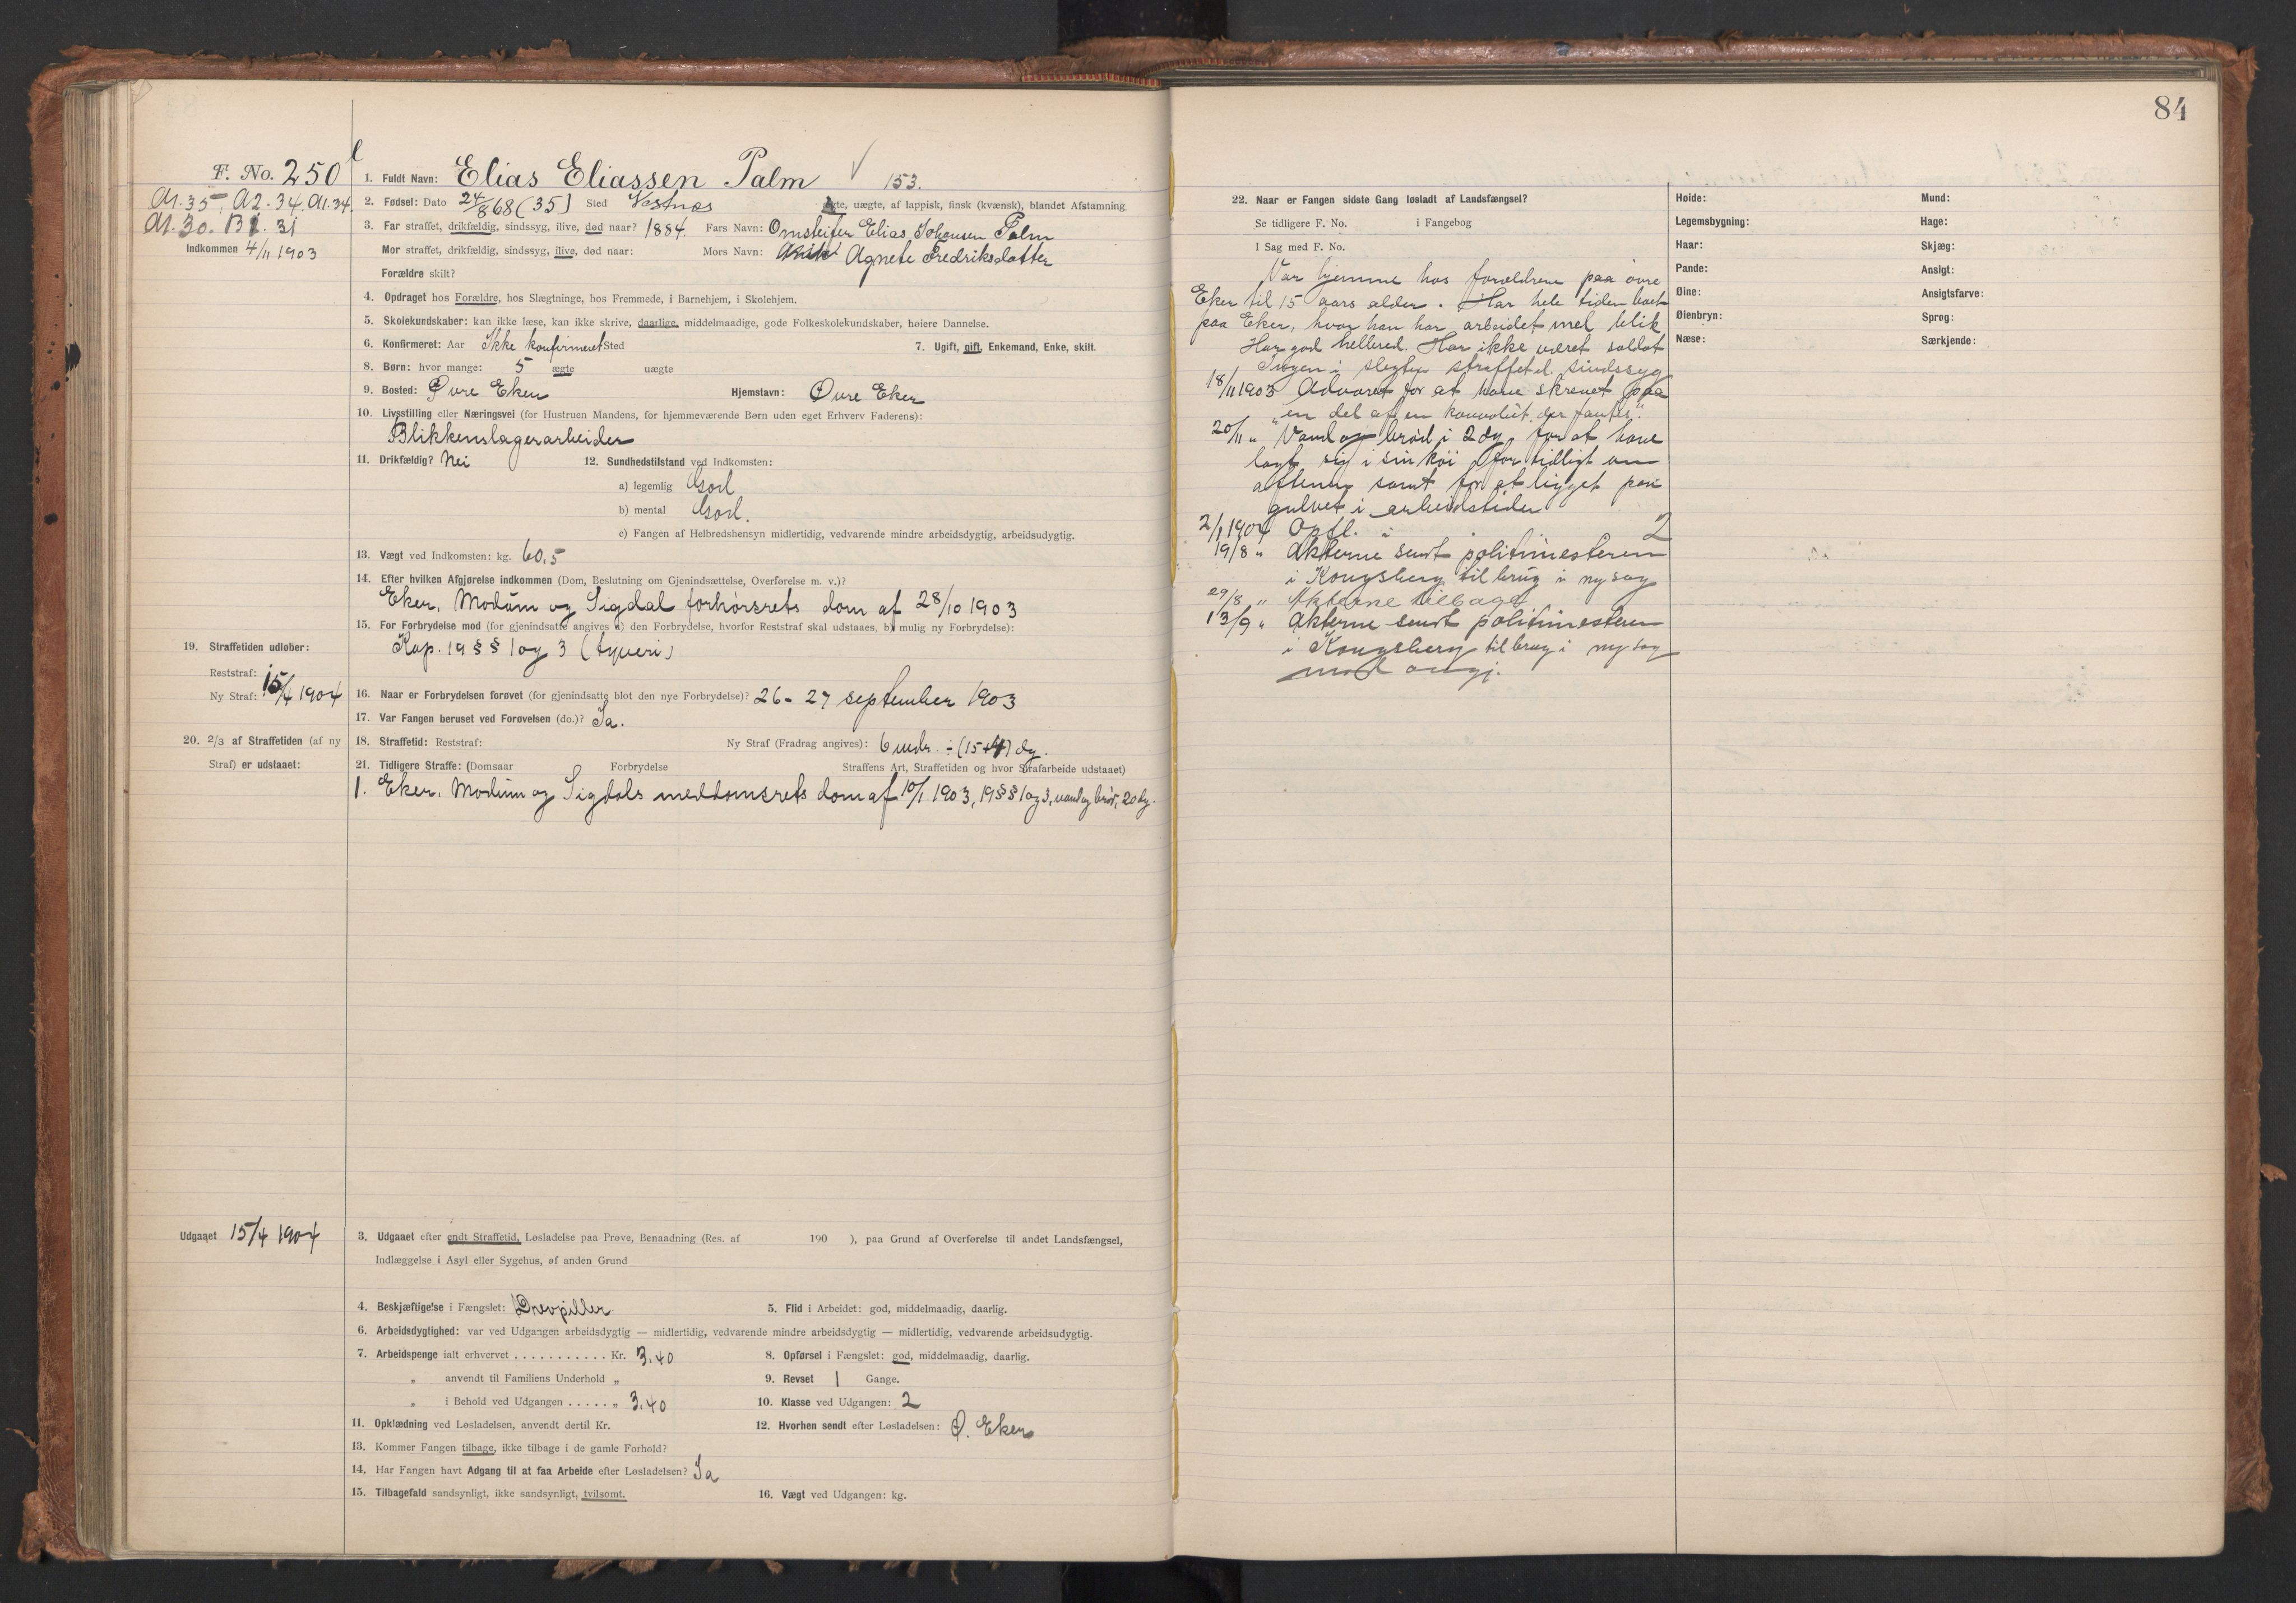 84
F. No. 250
1. Fuldt Navn: Elias Eliassen Palm 153.
A1.35, A2.34. A1.34.
A1.30. B1. 31
Indkommen 4/11 1903
2. Fødsel: Dato 24/8 68 (35) Sted Vestnes ægte, uægte, af lappisk, finsk (kvænsk), blandet Afstamning
3. Far straffet, drikfældig, sindssyg, ilive, død naar? 1884. Fars Navn: Omstreifer Elias Johansen Palm
Mor straffet, drikfældig, sindssyg, ilive, død naar: Mors Navn: Agnete Fredriksdatter
Forældre skilt?
4. Opdraget hos Forældre, hos Slægtninge, hos Fremmede, i Barnehjem, i Skolehjem.
5. Skolekundskaber: kan ikke læse, kan ikke skrive, daarlige, middelmaadige, gode Folkeskolekundskaber, høiere Dannelse.
6. Konfirmeret: Aar Ikke konfirmeret Sted 7. Ugift, gift, Enkemand, Enke, skilt.
8. Børn: hvor mange: 5 ægte uægte
9. Bosted: Øvre Eker Hjemstavn: Øvre Eker
10. Livsstilling eller Næringsvei (for Hustruen Mandens, for hjemmeværende Børn uden eget Erhverv Faderens):
Blikkenslagerarbeider
11. Drikfældig? Nei 12. Sundhedstilstand ved Indkomsten:
a) legemlig God
b) mental God.
c) Fangen af Helbredshensyn midlertidig, vedvarende mindre arbeidsdygtig, arbeidsudygtig.
13. Vægt ved Indkomsten: kg. 60,5
14. Efter hvilken Afgjørelse indkommen (Dom, Beslutning om Gjenindsættelse, Overførelse m. v.)?
Eker, Modum og Sigdal forhørsrets dom af 28/10 1903
15. For Forbrydelse mod (for gjenindsatte angives a) den Forbrydelse, hvorfor Reststraf skal udstaaes, b) mulig ny Forbrydelse):
Kap. 19 §§ 1 og 3 (tyveri)
19. Straffetiden udløber:
Reststraf:
Ny Straf: 15/4 1904
16. Naar er Forbrydelsen forøvet (for gjenindsatte blot den nye Forbrydelse)? 26-27 september 1903
17. Var Fangen beruset ved Forøvelsen (do.)? Ja.
20. 2/3 af Straffetiden (af ny
Straf) er udstaaet:
18. Straffetid: Reststraf: Ny Straf (Fradrag angives): 6 mdr. ÷ (15+4) dg.
21. Tidligere Straffe: (Domsaar Forbrydelse Straffens Art, Straffetiden og hvor Strafarbeide udstaaet)
1. Eker, Modum og Sigdals meddomsrets dom af 10/1 1903, 19 §§ 1 og 3, vand og brød, 20 dg.
Udgaaet 15/4 1904
3. Udgaaet efter endt Straffetid, Løsladelse paa Prøve, Benaadning (Res. af 190 ), paa Grund af Overførelse til andet Landsfængsel,
Indlæggelse i Asyl eller Sygehus, af anden Grund
4. Beskjæftigelse i Fængslet: Drevpiller 5. Flid i Arbeidet: god, middelmaadig, daarlig.
6. Arbeidsdygtighed: var ved Udgangen arbeidsdygtig — midlertidig, vedvarende mindre arbeidsdygtig — midlertidig, vedvarende arbeidsudygtig.
7. Arbeidspenge ialt erhvervet . . . . . . . . . . . Kr. 3.40 8. Opførsel i Fængslet: god, middelmaadig, daarlig.
„ anvendt til Familiens Underhold „ 9. Revset 1 Gange.
„ i Behold ved Udgangen . . . . . „ 3.40 10. Klasse ved Udgangen: 2
11. Opklædning ved Løsladelsen, anvendt dertil Kr. 12. Hvorhen sendt efter Løsladelsen: Ø. Eker
13. Kommer Fangen tilbage, ikke tilbage i de gamle Forhold?
14. Har Fangen havt Adgang til at faa Arbeide efter Løsladelsen? Ja
15. Tilbagefald sandsynligt, ikke sandsynligt, tvilsomt. 16. Vægt ved Udgangen: kg.
22. Naar er Fangen sidste Gang løsladt af Landsfængsel?
Se tidligere F. No. i Fangebog
I Sag med F. No.
Var hjemme hos forældrene paa øvre
Eker til 15 aars alder. Har hele tiden boet
paa Eker, hvor han har arbeidet med blik
Har god helbred. Har ikke været soldat
Ingen i slegten straffet el. sindssyg
18/11 1903 Advaret for at have skrevet paa
"en del af en konvolut, der fantes".
20/11 " "Vand og brød i 2 dg. for at have
lagt sig i sin køi for tidligt om
aftenen samt for at ligget paa
gulvet i arbeidstiden
2/1 1904 Opfl. i 2
19/8 " Akterne sendt politimesteren
i Kongsberg til brug i ny sag
29/8 " Akterne tilbage
13/9 " Akterne sendt politimesteren
i Kongsberg til brug i ny sag
mod angj.
Høide: Mund:
Legemsbygning: Hage:
Haar: Skjæg:
Pande: Ansigt:
Øine: Ansigtsfarve:
Øienbryn: Sprog:
Næse: Særkjende: